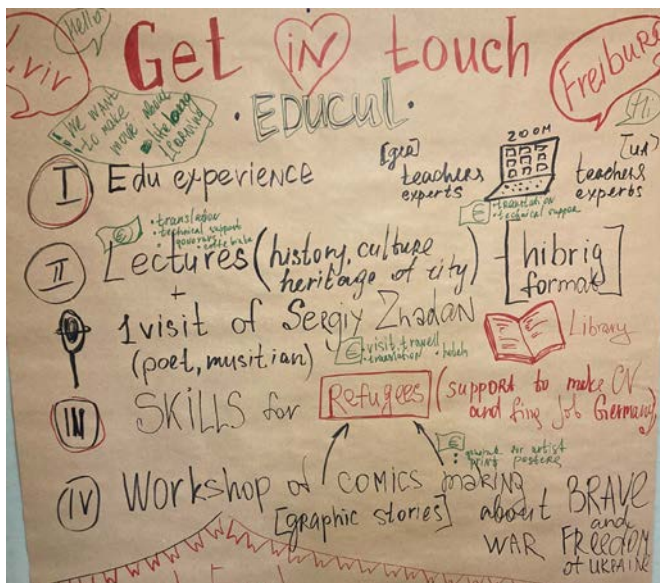 Lviv
Hello
Get in touch
Freiburg
Hi
• EDUCUL •
We want
to make
more about
lifelong
learning
I Edu experience
[ger] teachers experts
ZOOM
[ua] teachers experts
€ • translation
• technical support
€ • translation
• technical suppor
II Lectures (history, culture
heritage of city)
- [hibrig
format]
+
1 visit of Sergiy Zhadan
(poet, musitian)
€ • visit, travell
• translation • hotels
Library
III SKILLS for Refugees (support to make CV
and fing job Germany)
€
for artist
• print posters
IV Workshop of comics making
[graphic stories]
about BRAVE
and
WAR FREEDOM
of UKRAINE